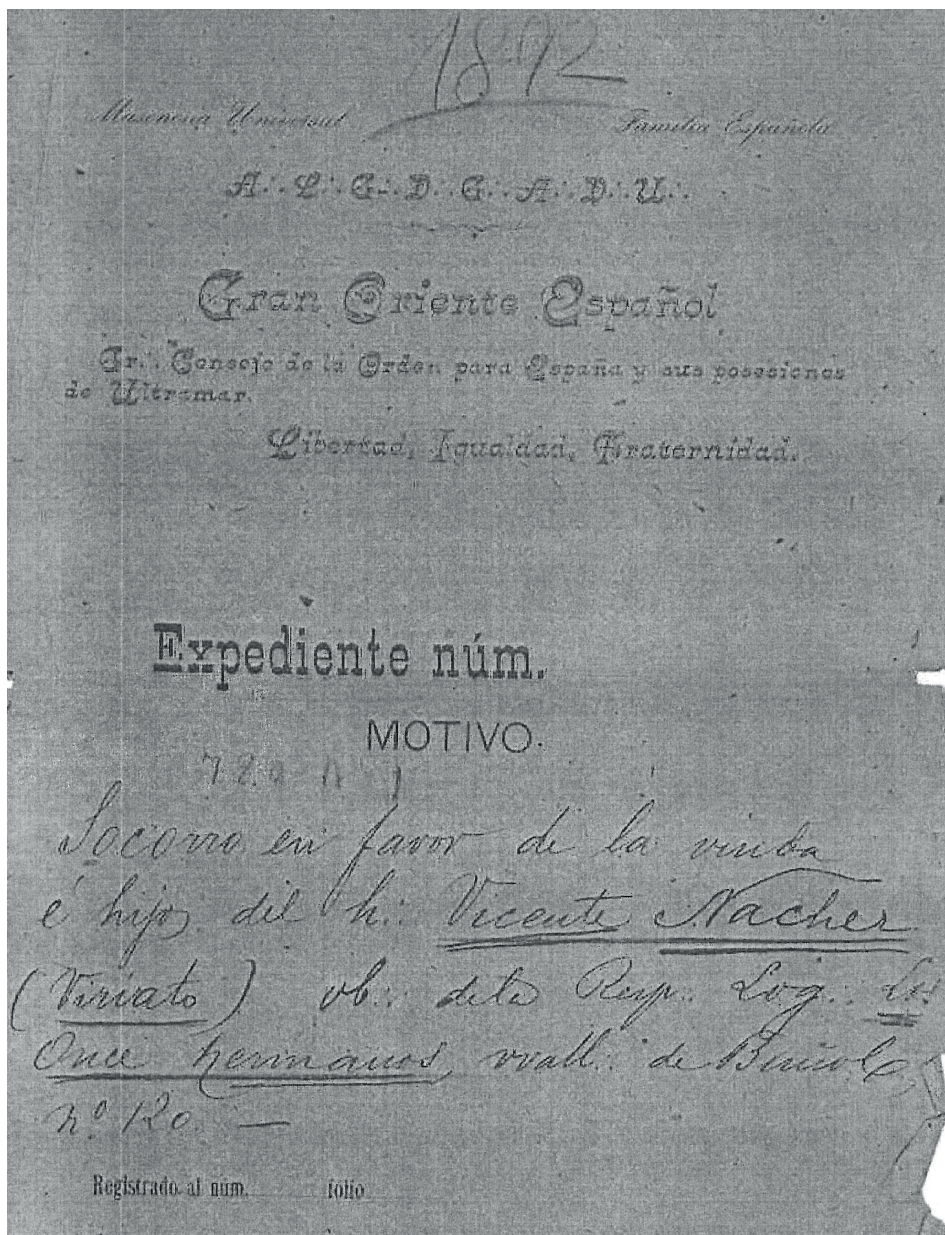 1892
Masonería Universal Familia Española
A∴ L∴ G∴ D∴ G∴ A∴ D∴ U∴
Gran Oriente Español
Gr∴ Consejo de la Orden para España y sus posesiones
de Ultramar.
Libertad, Igualdad, Fraternidad.
Expediente núm.
MOTIVO.
Socorro en favor de la viuda
é hijo del h∴ Vicente Nacher
(Viriato) ob∴ de la Resp∴ Log∴ Los
Once hermanos, vvall∴ de Buñol,
nº 120. —
Registrado al núm. folio